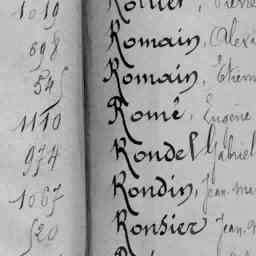 1019 Rollier, Pierre
698 Romain, Alexa
545 Romain, Etienn
1110 Romé, Eugène
974 Rondel, Gabriel
1067 Rondin, Jean-Ma
520 Ronsier, Jean-